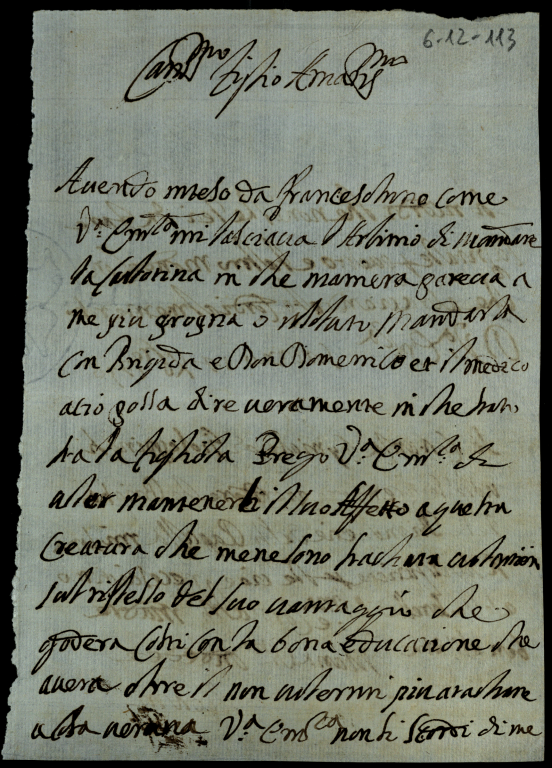 6-12-113
Cariss.mo figlio Amatiss.mo
Avendo inteso da franceschino come
V.a Em.za mi lasciava l'Arbitrio di mandare
la in che maniera pareva a
me piu propria ò mandarla
con Brigida e Don Domenico et il medico
acio possa dire veramente in che stato
sta la figliola Prego V.a Em.za di
voler mantenerli il suo Affetto a questa
creatura che me ne sono
sul riflesso del suo vantaggio che
godera costi con la bona educacione che
avera oltre il non piu
altra V.a Em.za non si scordi di me